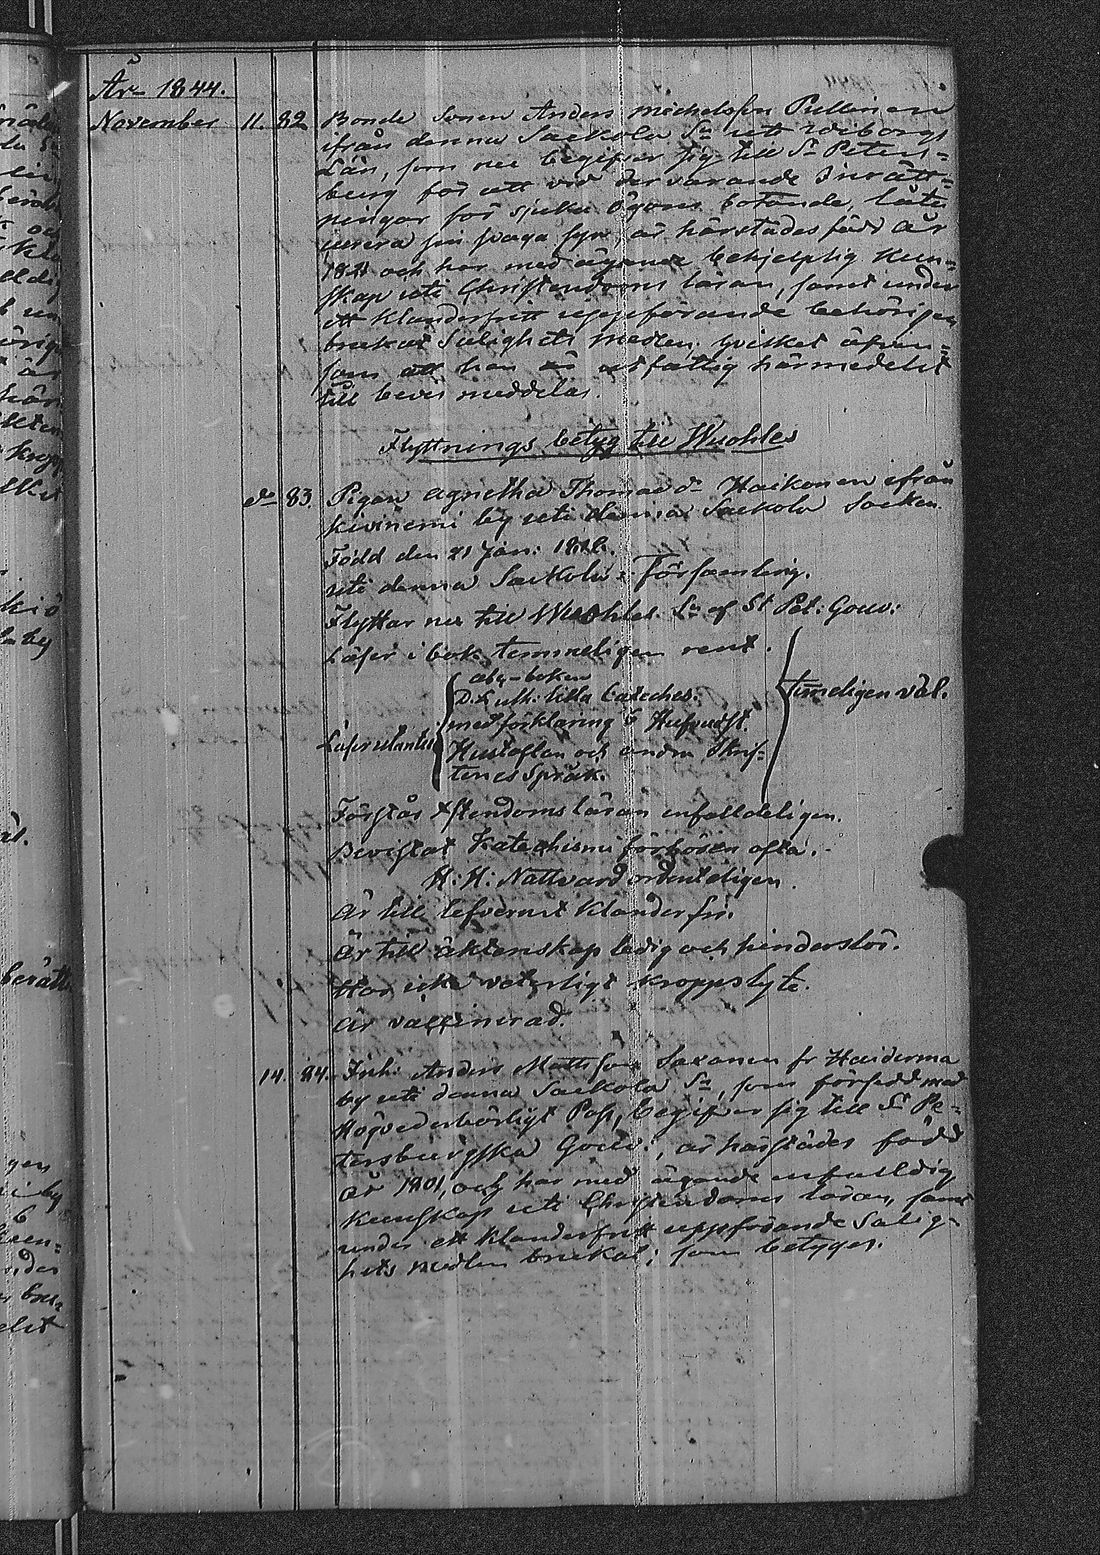 År 1844.
November 11. 82. Bonde Sonen Anders Michelsson Pullinen
ifrån denna Sackola Sn uti Wiborgs
Län, som nu begifver sig till St Peters=
burg för att vid dervarande Inrätt=
ningar för sjuka ögons botande, låta
curera sin svaga syn, är härstädes född år
och har med ägande behjelplig Kun=
skap uti Christendoms läran, samt under
ett klanderfritt uppförande behörigen
brukat Salighets medlen; hvilket äfven=
som att han är utfattig härmedelst
till bevis meddelas.
Flyttnings betyg till Wuohles
do 83. Pigan Agnetha Thomae dr Haikonen ifrån
Kivinemi by uti denna Sackola Socken.
Född den 21 Jan: 1818.
uti denna Sackola Församling.
Flyttar nu till Wuohles Sn af St Pet: Gouv:
Läser i bok temmeligen rent.
Läser utantill
abc-boken
D. Luth: lilla Cateches.
med förklaring
Hustaflan och andra Skrif=
tenes Språk.
temeligen väl.
Förstår Xstendoms läran enfalldeligen.
Bevistat Katechismi förhören ofta.
H: H: Nattvard ordenteligen.
Är till lefvernet klanderfri.
Är till äktenskap ledig och hinderslös.
Har icke veterligt kroppslyte.
Är vaccinerad.
14. 84. Inh: Anders Mattsson Saxanen fr Haiderma
by uti denna Sackola Sn, som försedd med
Högvederbörligt Pass, begifver sig till St Pe=
tersburgska Gouv:, är härstädes född
år 1801, och har med ägande enfalldig
kunskap uti Christendoms läran, samt
under ett klanderfritt uppförande Salig=
hets medlen brukat; som betygas.